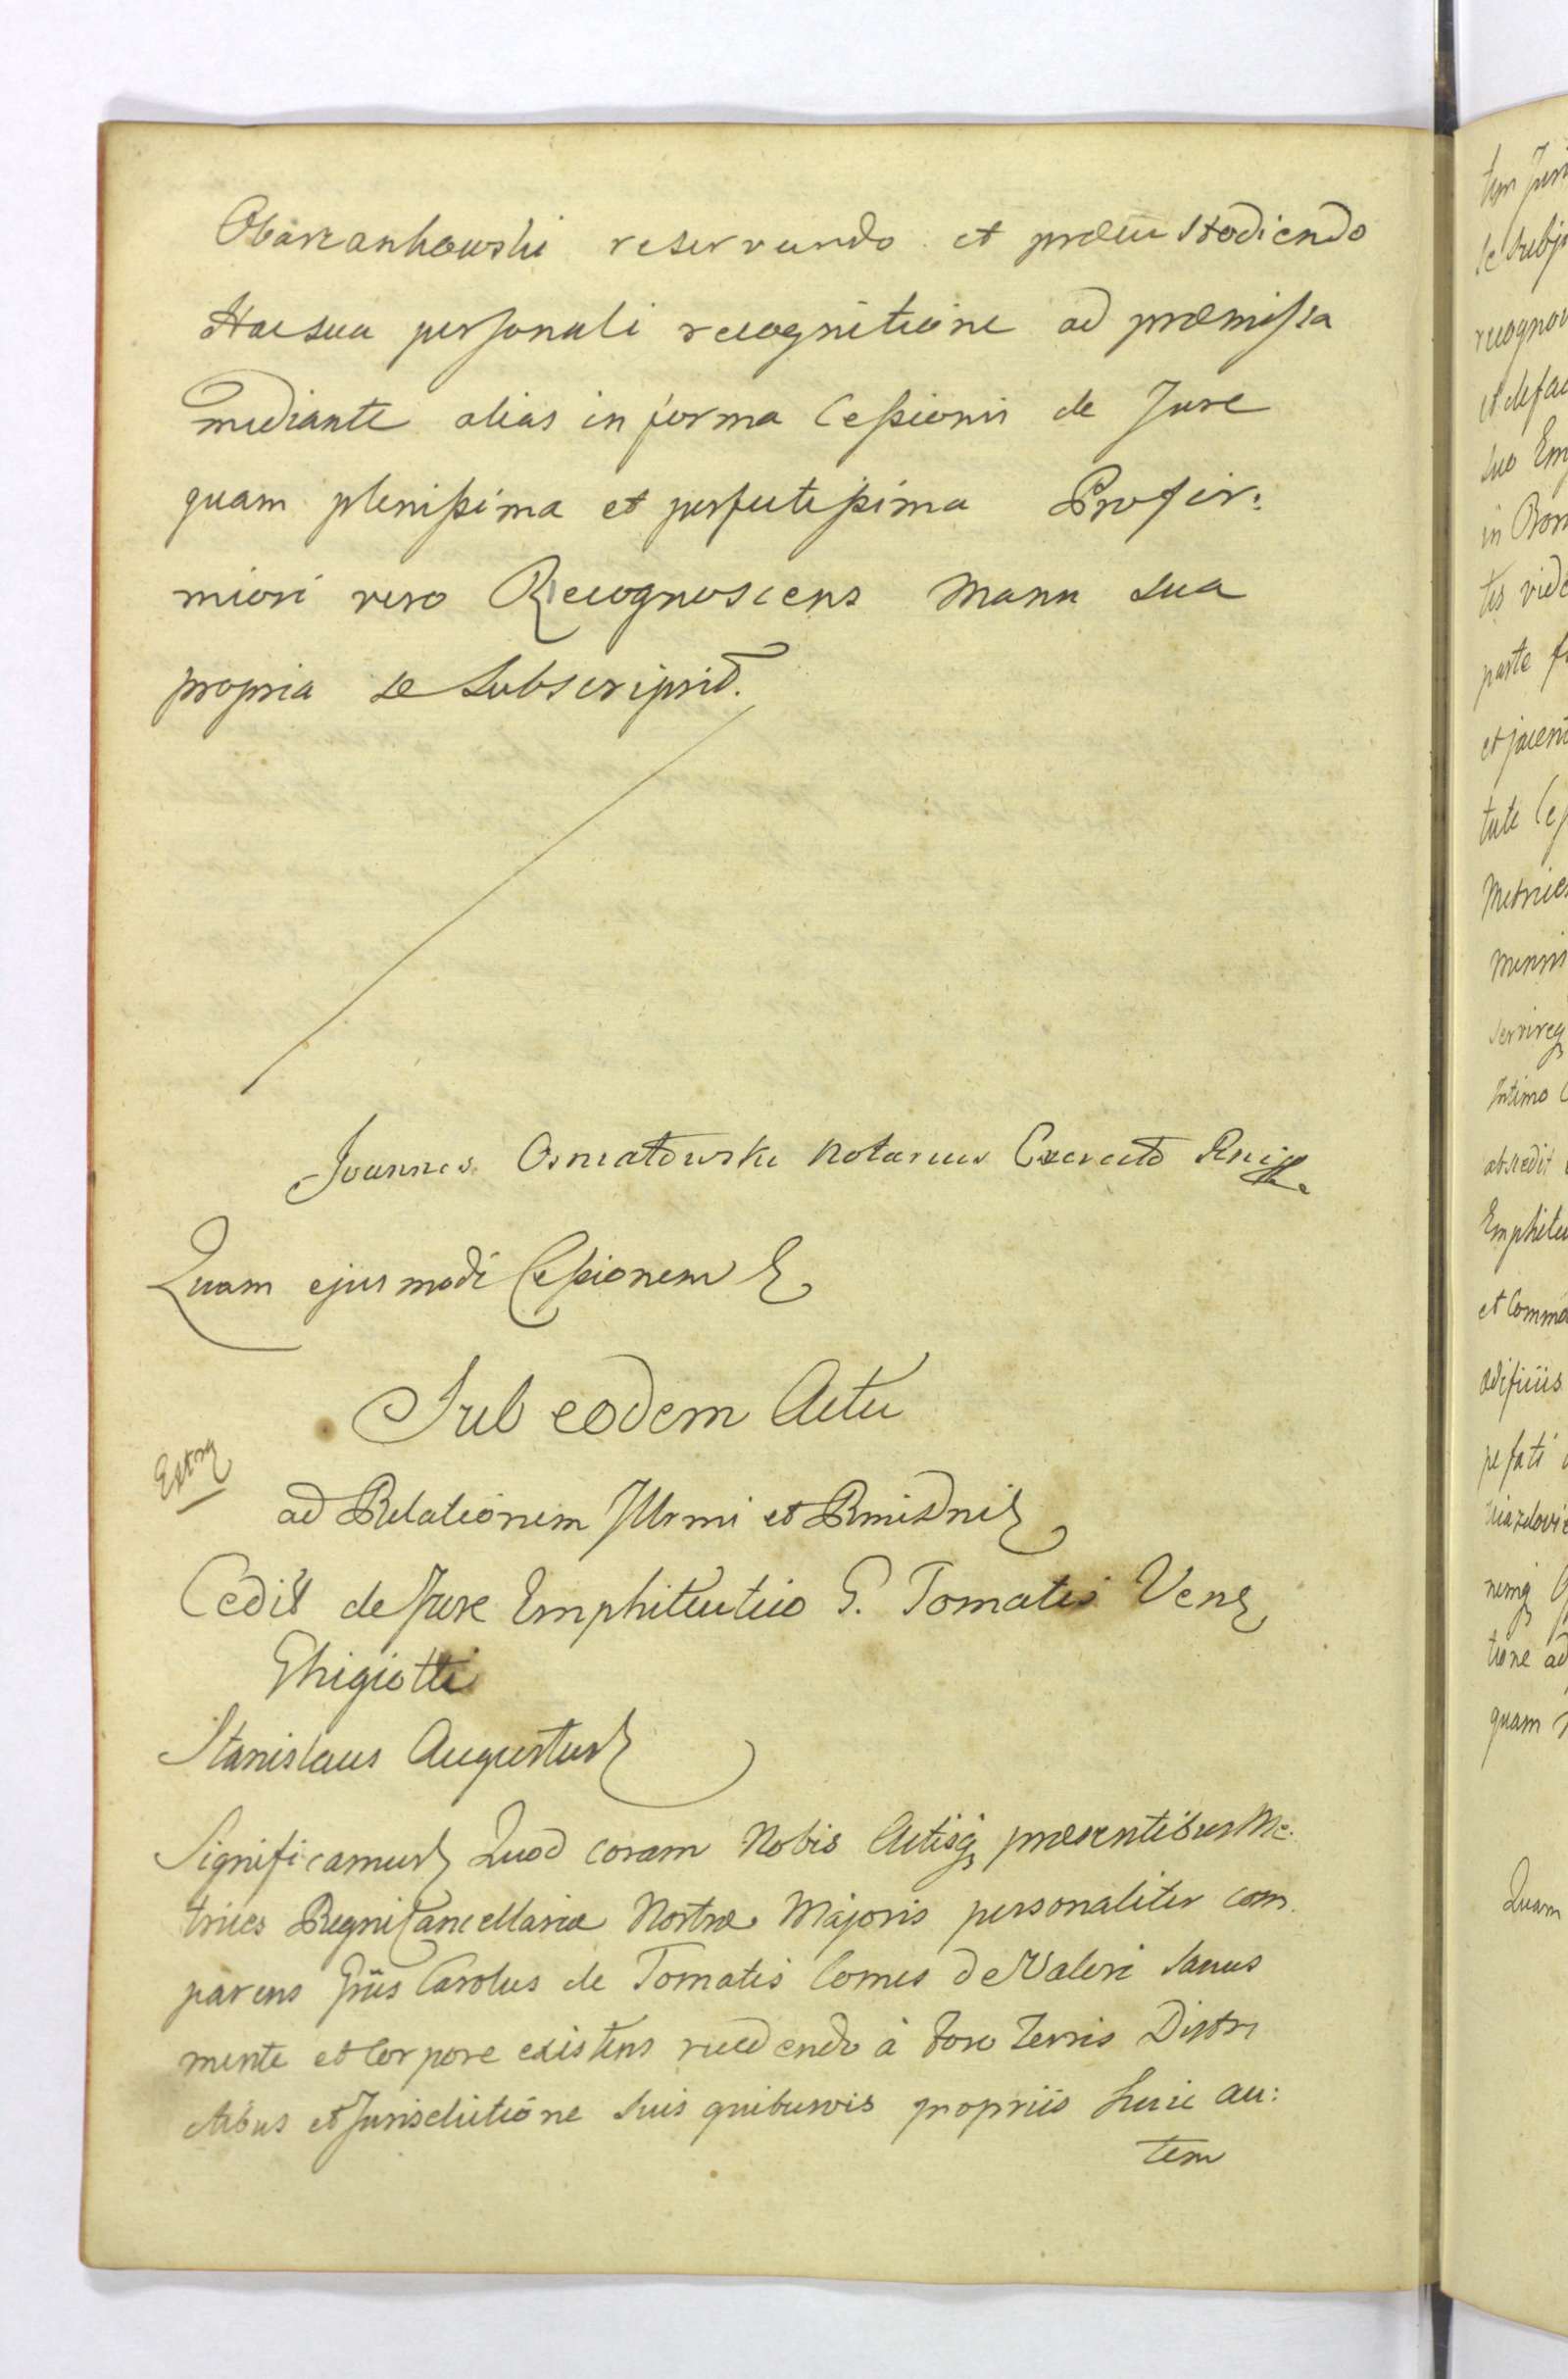 Obarzankowski reservando et præcustodiendo
Hac sua personali recognitione ad præmissa
mediante alias in forma Cessionis de Jure
quam plenissima et perfectissima Pro fir:
miori vero Recognoscens Manu sua
propria se subscripsit.
Joannes Notarius
Quam ejusmodi Cessionem
Sub eodem Actu
ad Relationem Illrmi et Rmi Dni
Cedit de Jure Emphiteutico G. Tomatis Ven
Ghigiotti
Stanislaus Augustus
Significamus Quod coram Nobis Actisq præsentibus Me:
trices Regni Cancellariæ Nostræ Majoris personaliter com
parens Gnus Carolus de Tomatis Comes de Valeri Sanus
mente et Corpore existens recedendo à foro Terris Distri
ctibus et Jurisdictione suis quibusvis propriis huic au:
tem
tem
se subj
recognov
et defa
suo Em
in
tis vide
parte
et jacent
tute
Metrices
Intimo
abscedit
Emphiteu
et Commo
ædificiis
tione ad
quam
Quam